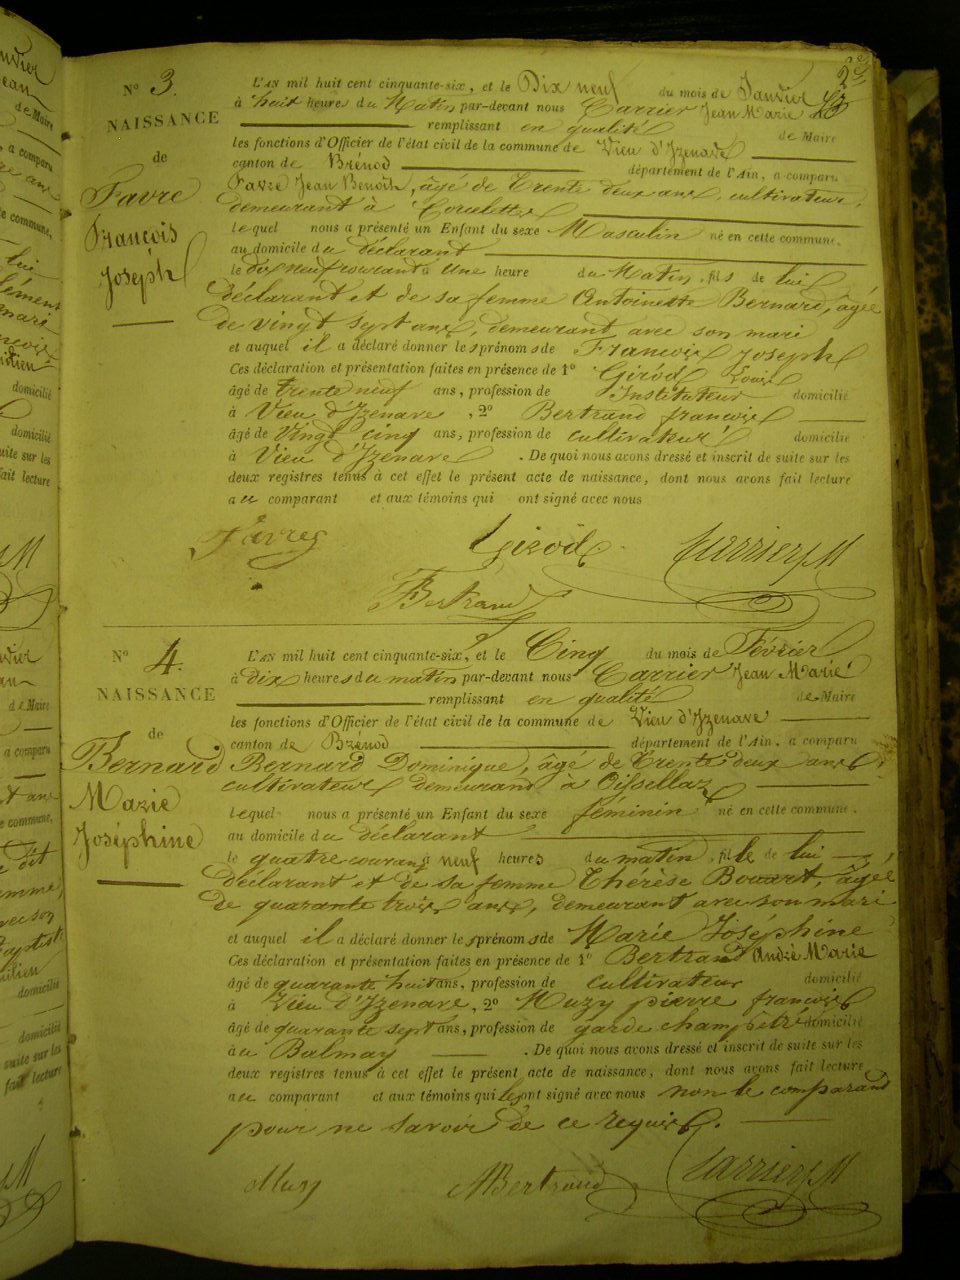 N° 3.
NAISSANCE
de
Favre
François
Joseph
L'AN mil huit cent cinquante-six, et le Dix neuf du mois de Janvier
à huit heures du Matin par-devant nous Carrier Jean Marie
remplissant en qualité de Maire
les fonctions d'Officier de l'état civil de la commune de Vieu d'Izenave
canton de Brénod département de l'Ain, a comparu
Favre Jean Benoit, âgé de Trente deux ans, cultivateur,
demeurant à Corcelette
Lequel nous a présenté un Enfant du sexe Masculin né en cette commune,
au domicile du déclarant
le dix neuf courant à Une heure du Matin, fils de lui
déclarant et de sa femme Antoinette Bernard, âgée
de vingt sept ans, demeurant avec son mari
et auquel il a déclaré donner les prénoms de François Joseph
Ces déclaration et présentation faites en présence de 1° Girod Louis
âgé de trente neuf ans, profession de Instituteur domicilié
à Vieu d'Izenave, 2° Bertrand françois
âgé de Vingt cinq ans, profession de cultivateur domicilié
à Vieu d'Izenave. De quoi nous avons dressé et inscrit de suite sur les
deux registres tenus à cet effet le présent acte de naissance, dont nous avons fait lecture
au comparant et aux témoins qui ont signé avec nous
Girod Carrier JM
Bertrand
N° 4.
NAISSANCE
de
Bernard
Marie
Joséphine
L'AN mil huit cent cinquante-six, et le Cinq du mois de Février
à dix heures du matin par-devant nous Carrier Jean Marie
remplissant en qualité de Maire
les fonctions d'Officier de l'état civil de la commune de Vieu d'Izenave
canton de Brénod département de l'Ain, a comparu
Bernard Dominique, âgé de Trente deux ans
cultivateur demeurant à Oisellaz
Lequel nous a présenté un Enfant du sexe féminin né en cette commune,
au domicile du déclarant
le quatre courant à neuf heures du matin, fille de lui
déclarant et de sa femme Thérèse Bouart, âgée
de quarante trois ans, demeurant avec son mari
et auquel il a déclaré donner les prénoms de Marie Joséphine
Ces déclaration et présentation faites en présence de 1° Bertrand André Marie
âgé de quarante huit ans, profession de cultivateur domicilié
à Vieu d'Izenave, 2° Muzy pierre françois
âgé de quarante sept ans, profession de garde champêtre domicilié
à Balmay. De quoi nous avons dressé et inscrit de suite sur les
deux registres tenus à cet effet le présent acte de naissance, dont nous avons fait lecture
au comparant et aux témoins qui ont signé avec nous non le comparand
pour ne savoir de ce requis.
Muzy AMBertrand Carrier JM